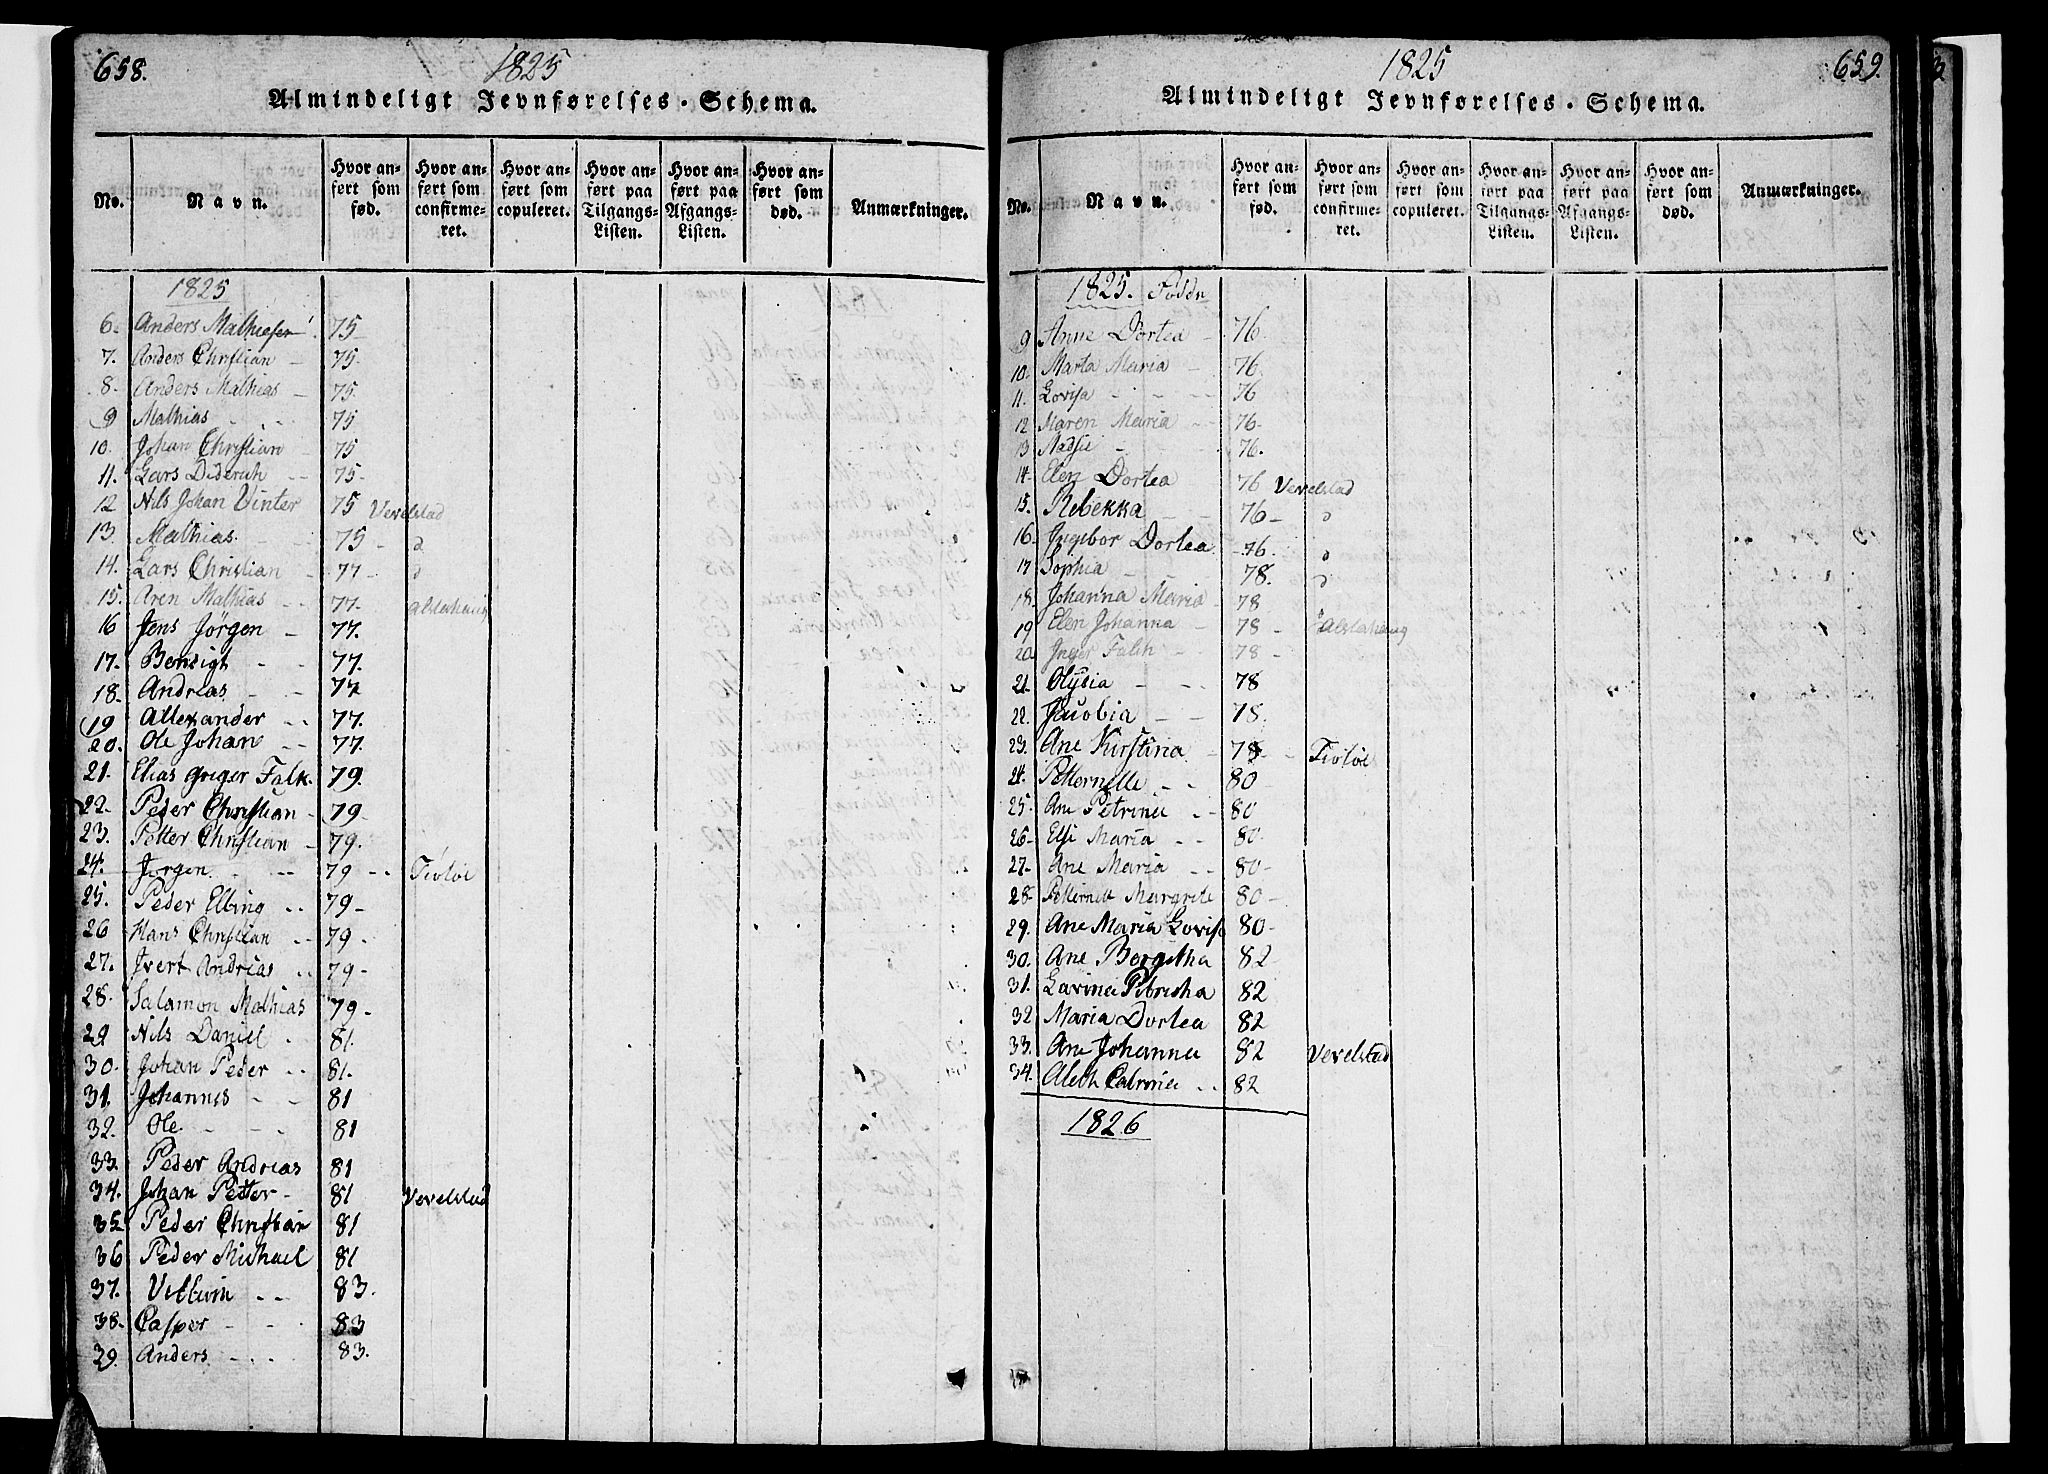 658.
1825
Almindeligt Jevnførelses-Schema.
No.
Navn.
Hvor anført som fød.
Hvor anført som confirmeret.
Hvor anført som copuleret.
Hvor anført paa Tilgangs-Listen.
Hvor anført paa Afgangs-Listen.
Hvor anført som død.
Anmærkninger.
1825
6. Anders Mathiesen 75
7. Anders Christian - 75.
8. Anders Mathias - 75.
9 Mathias - - - 75
10. Johan Christian 75
11. Lars Diderich - - 75-
12 Nils Johan Vinter 75 Vevelstad
13. Mathias. - - 75 - d
14. Lars Christian - 77 - d
15. Aren Mathias - - 77. Alstahaug
16 Jens Jörgen - 77.
17. Bensigt - - 77.
18. Andreas - - 77
19 Allexander - - 77.
20. Ole Johan - - 77.
21. Elias Griger Falk. 79.
22. Peder Christian - 79-
23. Petter Christian - 79.
24. Jörgen. - - - 79 - - Tiötöe
25. Peder Elling - - 79-
26 Hans Christian - - 79-
27. Ivert Andrias - - 79-
28. Salamon Mathias 79-
29 Nils Daniel - 81.
30. Johan Peder - - 81.
31. Johannes - - 81
32. Ole - - - 81
33. Peder Andrias 81
34. Johan Petter - 81 Vevelstad
35 Peder Christian 81
36 Peder Michael 81
37. Villum - - 83.
38. Casper - - 83
39. Anders - - - 83.
1825
659.
Almindeligt Jevnførelses-Schema.
No.
Navn.
Hvor anført som fød.
Hvor anført som confirmeret.
Hvor anført som copuleret.
Hvor anført paa Tilgangs-Listen.
Hvor anført paa Afgangs-Listen.
Hvor anført som død.
Anmærkninger.
1825. Födde
9 Anne Dortea - 76.
10. Marta Maria - 76.
11. Lovisa - - - 76
12 Maren Maria - - 76-
13 Madsie - - - 76.
14- Elen Dortea - 76 Vevelstad
15. Rebekka - - 76- d
16. Ingebor Dortea - 76. d
17 Sophia - - 78. d
18. Johanna Maria - 78
19 Elen Johanna - 78 - Alstahaug
20 Inger Falch - - 78-
21. Olysia - - - 78
22. Jacobia - - 78.
23. Ane Kirstina - 78 - Tiötöe
24. Petternelle - - 80
25. Ane Petrina - - 80
26- Elsi Maria - - 80-
27- Ane Maria - - 80-
28- Petternell Margrete 80-
29. Ane Maria Lovisa 80-
30. Ane Bergitha 82-
31. Lavina Petricha 82
32 Maria Dortea 82
33. Ane Johanna 82 Vevelstad
34. Aleth - - 82
1826